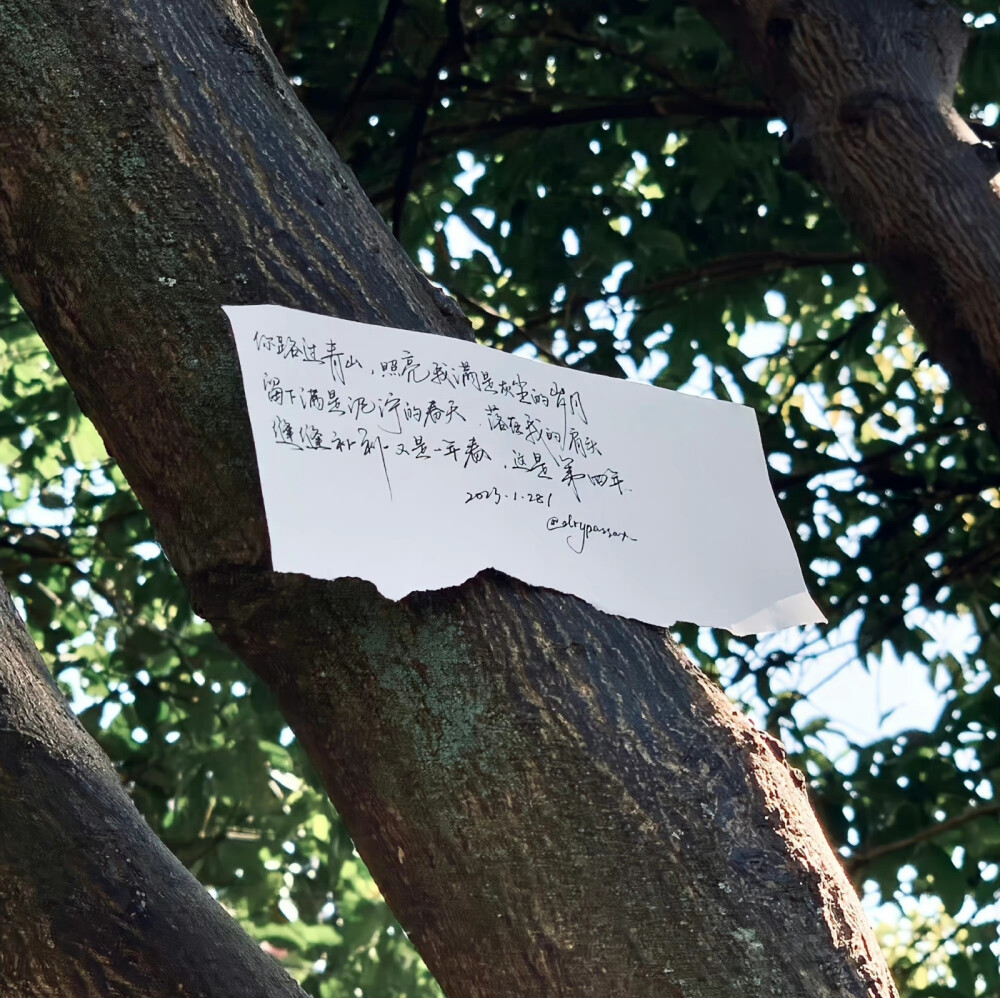 你路过青山，照亮我满是灰尘的岁月
留下满是泥泞的春天．落在我的肩头
缝缝补补．又是一年春．这是第四年．
2023.1.28